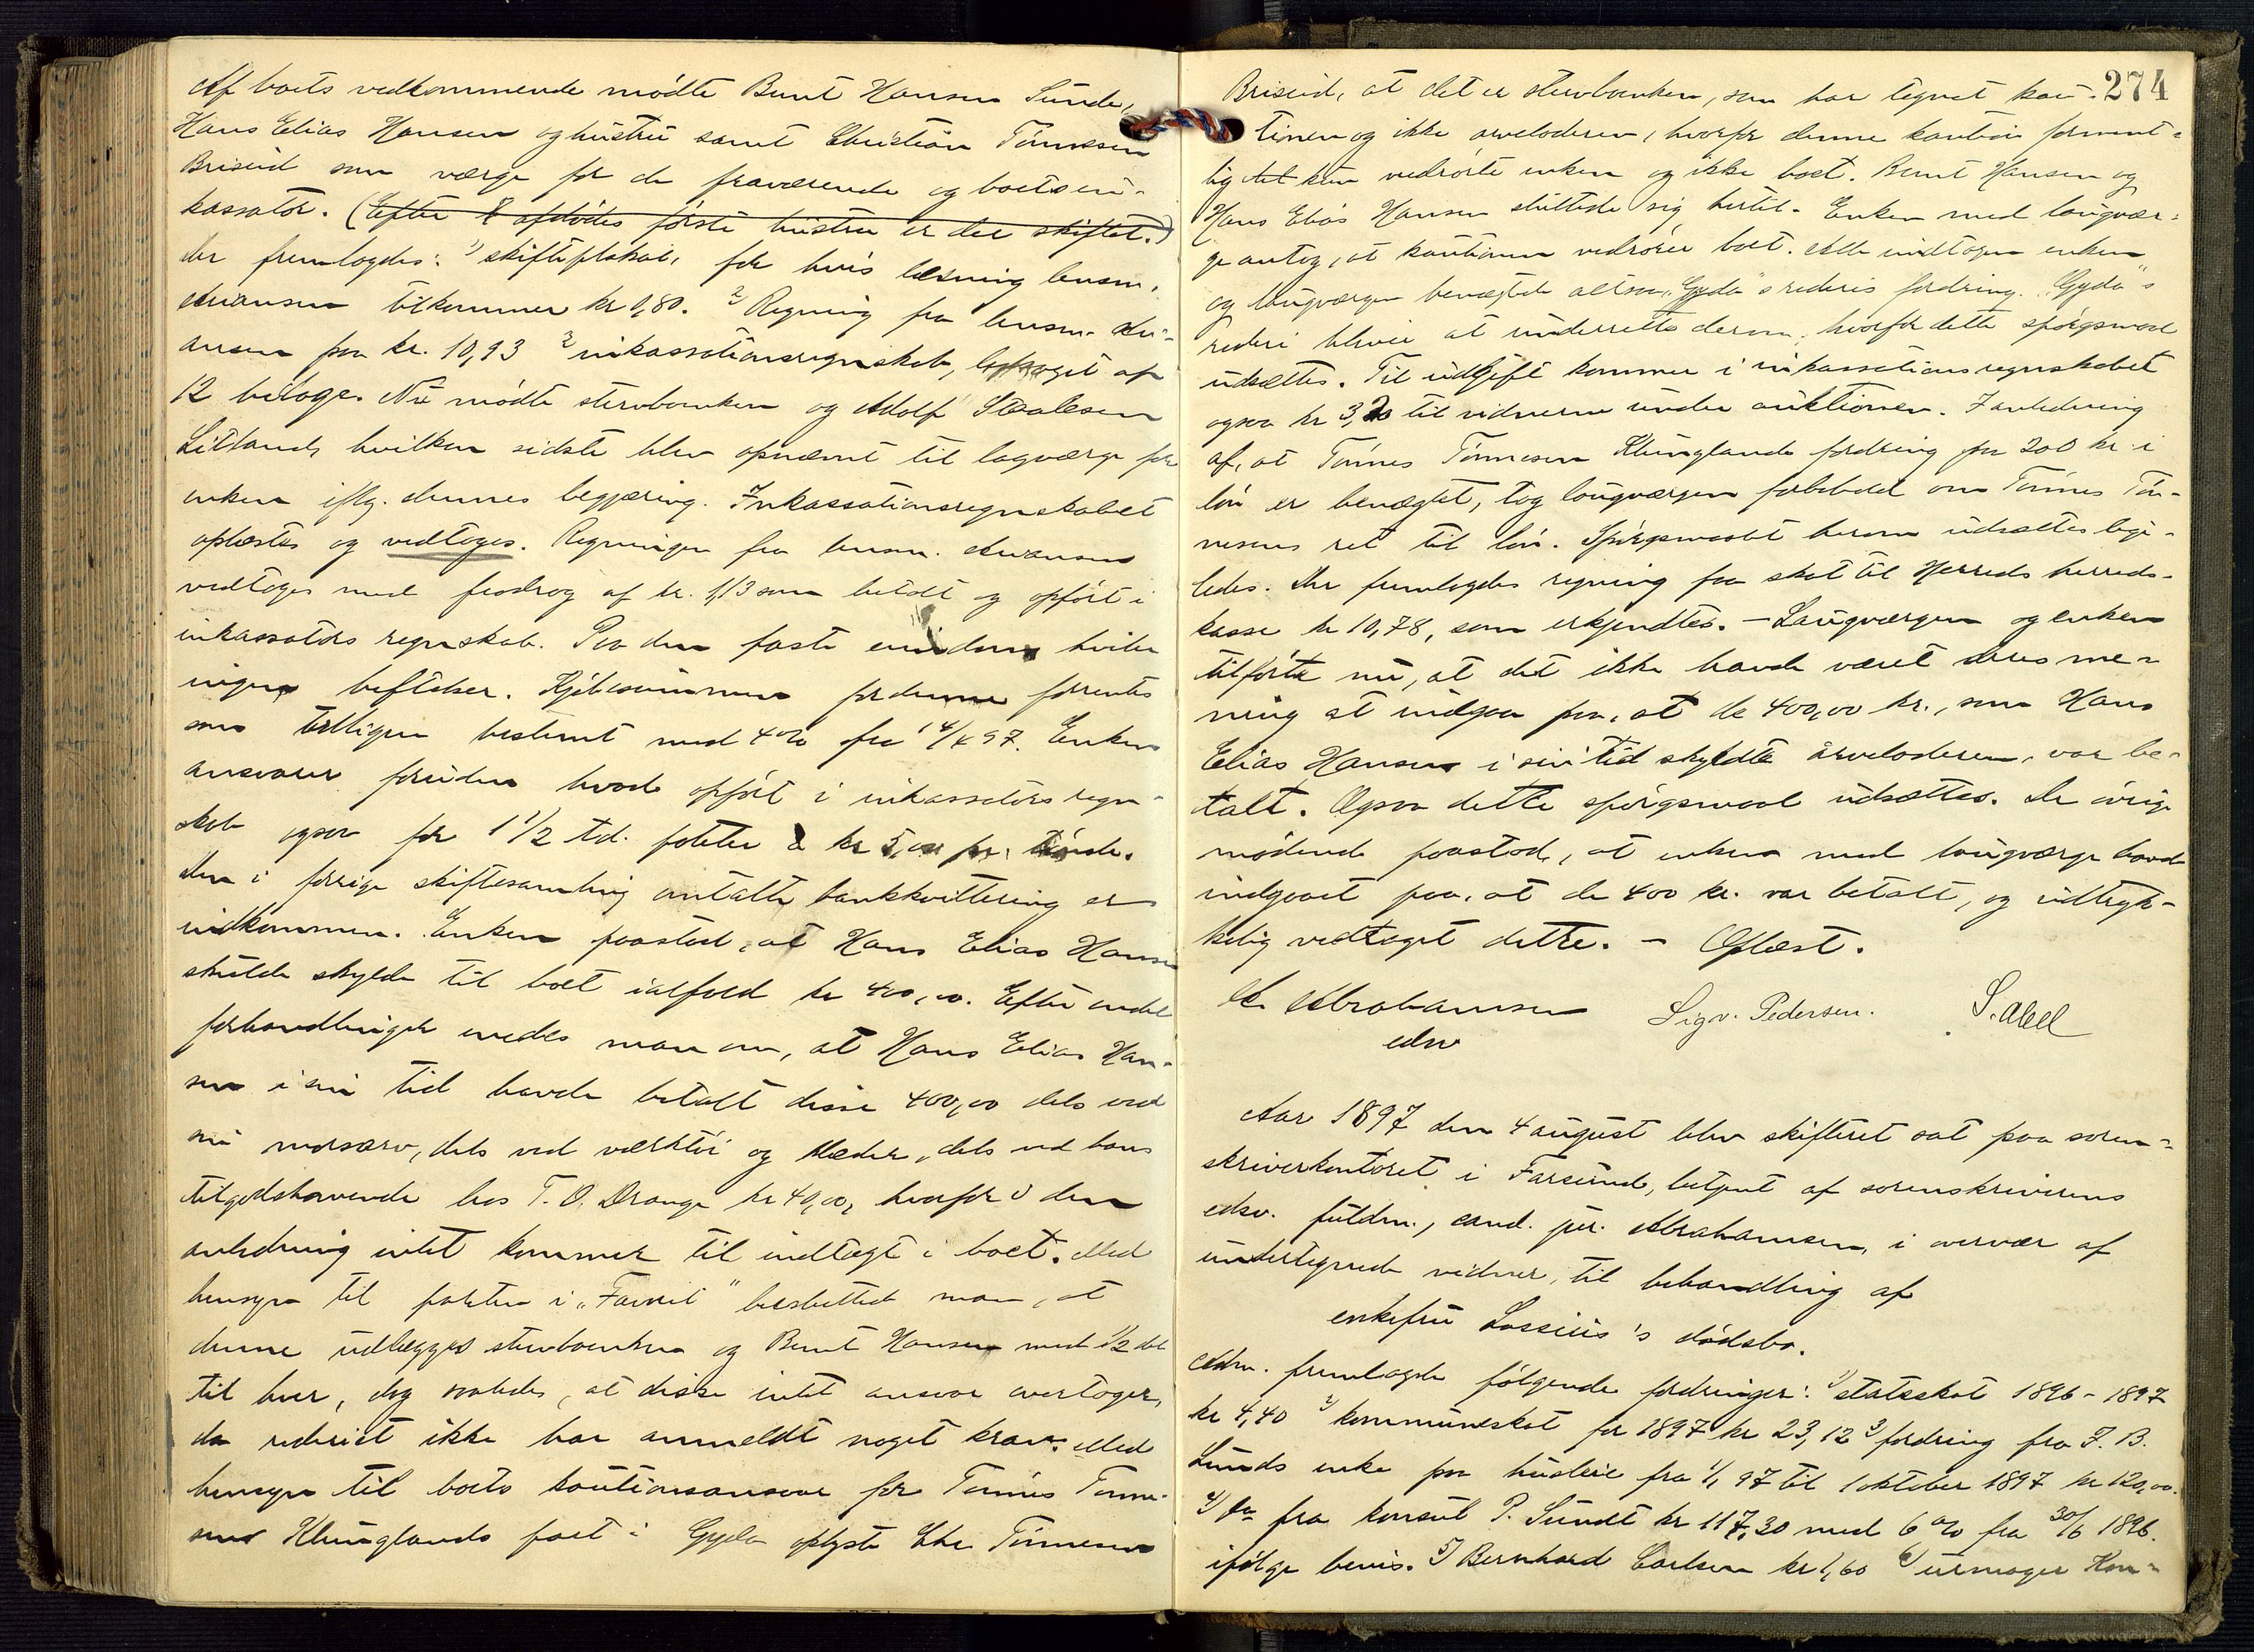 Af boets vedkommende mödte Bernt Hansen Sunde,
Hans Elias Hansen og hustru samt Christian Tönnessen
Briseid som værge for de fraværende og boets in-
kassator. (Efter afdödes förste hustru er der skiftet.)
der fremlagdes: 1) skifteplakat, for hvis læsning lensm.
Auensen tilkommer kr 0,80. 2 Regning fra lensm. Au-
ensen paa kr. 10,93 3 inkassationsregnskab, ledsaget af
12 bilage. Nu mödte stervboenken og Adolf Staalesen
Litland, hvilken sidste blev opnævnt til lagværge for
enken iflg. dennes begjæring. Inkassationsregnskabet
oplæstes og vedtoges. Regningen fra lensm. Auensen
vedtoges med fradrag af kr. 1,13 som betalt og opfört i
inkassators regnskab. Paa den faste eiendom hviler
ingen heftelser. Kjöbesummen for denne forrentes
som tidligere bestemt med 4% fra 14/4 97. Enken
ansvarer foruden hvad opfört i inkassators regn-
skab ogsaa for 1 1/2 td. poteter a kr 5,00 pr. tönde.
Den i forrige skiftesamling omtalte bankkvittering er
indkommen. Enken paastod, at Hans Elias Hansen
skulde skylde til boet ialfald kr 400,00. Efter endel
forhandlinger enedes man om, at Hans Elias Han-
sen i sin tid havde betalt disse 400,00 dels ved
sin morsarv, dels ved værktöi og klæder, dels ved hans
tilgodehavende hos T. O. Drange kr 40,00, hvorfor i den
anledning intet kommer til indtægt i boet. Med
hensyn til parten i "Favorit" besluttede man, at
denne udlægges stervboenken og Bernt Hansen med 1/2 del
til hver, dog saaledes, at disse intet ansvar overtager,
da rederiet ikke har anmeldt noget krav. Med
hensyn til boets kautionsansvar for Tönnes Tönne-
sens Klunglands part i Gyda oplyste Chr Tönnesen
274
Briseid, at det er stervboenken, som har tegnet kau-
tionen og ikke arveladeren, hvorfor denne kaution forment-
lig det kun vedrörte enken og ikke boet. Bernt Hansen og
Hans Elias Hansen sluttede sig hertil. Enken med laugvær-
ge antog, at kautionen vedrörer boet. Alle undtagen enken
og laugværgen benægtede altsaa "Gyda"s rederis fordring. "Gyda"s
rederi bliver at underrette derom, hvorfor dette spörgsmaal
udsættes. Til udgift kommer i inkassationsregnskabet
ogsaa kr 3,20 til vidnerne under auktionen. I anledning
af, at Tönnes Tönnesen Klunglands fordring paa 200 kr i
lön er benægtet, tog laugværgen forbehold om Tönnes Tön-
nesens ret til lön. Spörgsmaalet herom udsættes lige-
ledes. Der fremlagdes regning fra skat til Herreds herreds-
kasse kr 10,78, som erkjendtes. - Laugværgen og enken
tilförte nu, at det ikke havde været deres me-
ning at indgaa paa, at de 400,00 kr., som Hans
Elias Hansen i sin tid skyldte arveladeren, var be-
talt. Ogsaa dette spörgsmaal udsættes. De övrige
mödende paastod, at enken med laugværge havde
indgaaet paa, at de 400 kr. var betalt, og udtryk-
kelig vedtaget dette. - Oplæst.
A. Abrahamsen Sigv. Pedersen. S. Abel
edsv
Aar 1897 den 4 august blev skifteret sat paa soren-
skriverkontoret i Farsund, betjent af sorenskriverens
edsv. fuldm., cand. jur. Abrahamsen, i overvær af
undertegnede vidner, til behandling af
enkefru Lossius's dödsbo.
Adm. fremlagde fölgende fordringer: 1) statsskat 1896-1897
kr 4,40 2) kommuneskat for 1897 kr 23,12 3) fordring fra J. B.
Lunds enke paa husleie fra 1/1 97 til 1 oktober 1897 kr 120,00.
4) do fra konsul P. Sundt kr 117,30 med 6% fra 30/6 1896.
ifölge bevis. 5) Bernhard Carlsen kr 1,60 6) urmager Kon-